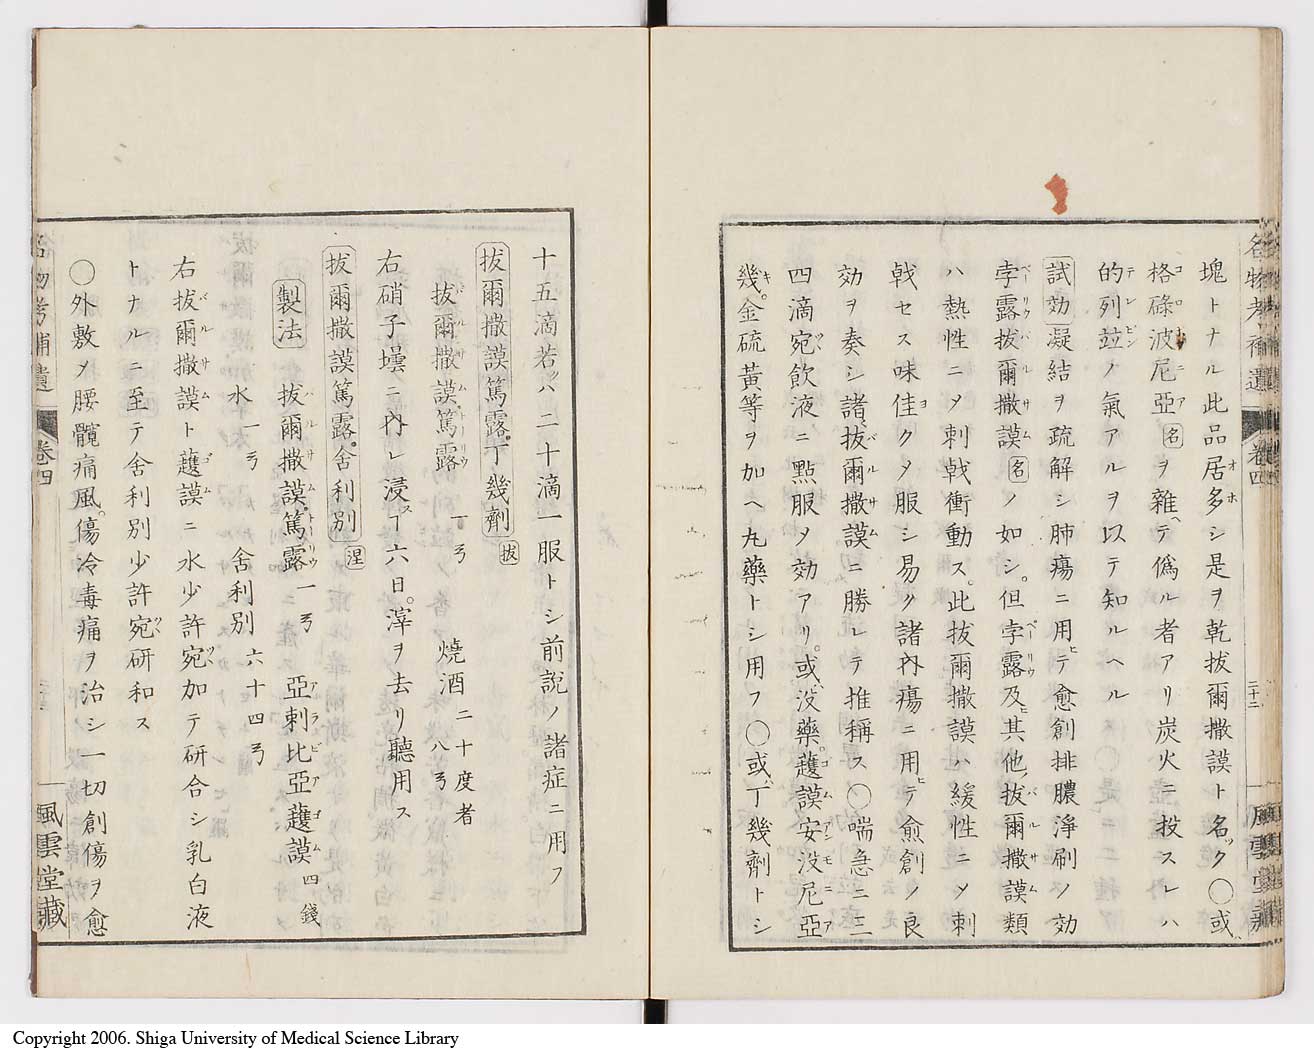 塊トナル此品居多シ是ヲ乾拔爾撒謨ト名ク〇或
格碌波尼亞名ヲ雜テ僞ル者アリ炭火ニ投スレハ
的列竝ノ氣アルヲ以テ知ルヘル
試効凝結ヲ疏解シ肺瘍ニ用テ愈創排膿淨刷ノ効
孛露拔爾撒謨名ノ如シ但孛露及其他拔爾撒謨類
ハ熱性ニメ刺戟衝動ス此拔爾撒謨ハ緩性ニメ刺
戟セス味佳クメ服シ易ク諸内瘍ニ用テ愈創ノ良
効ヲ奏シ諸拔爾撒謨ニ勝レテ推稱ス〇喘急ニ三
四滴宛飲液ニ點服メ効アリ或沒藥薩謨安沒尼亞
幾金硫黃等ヲ加ヘ丸藥トシ用フ〇或丁幾劑トシ
名物考補遺 卷四 二十二 風雲堂藏
十五滴若ハ二十滴一服トシ前說ノ諸症ニ用フ
拔爾撒謨篤露丁幾劑 拔
拔爾撒謨篤露 一ゟ 燒酒二十度者 八ゟ
右硝子壜ニ内レ浸丁六日滓ヲ去リ聽用ス
拔爾撒謨篤露舍利別 涅
製法 拔爾撒謨篤露 一ゟ 亞剌比亞護謨 四錢
水 一ゟ 舍利別 六十四ゟ
右拔爾撒謨ト護謨ニ水少許宛加テ研合シ乳白液
トナルニ至テ舍利別少許宛研和ス
〇外敷メ腰髖痛風傷冷毒痛ヲ治シ一切創傷ヲ愈
名物考補遺 卷四 風雲堂藏
Copyright 2006. Shiga University of Medical Science Library